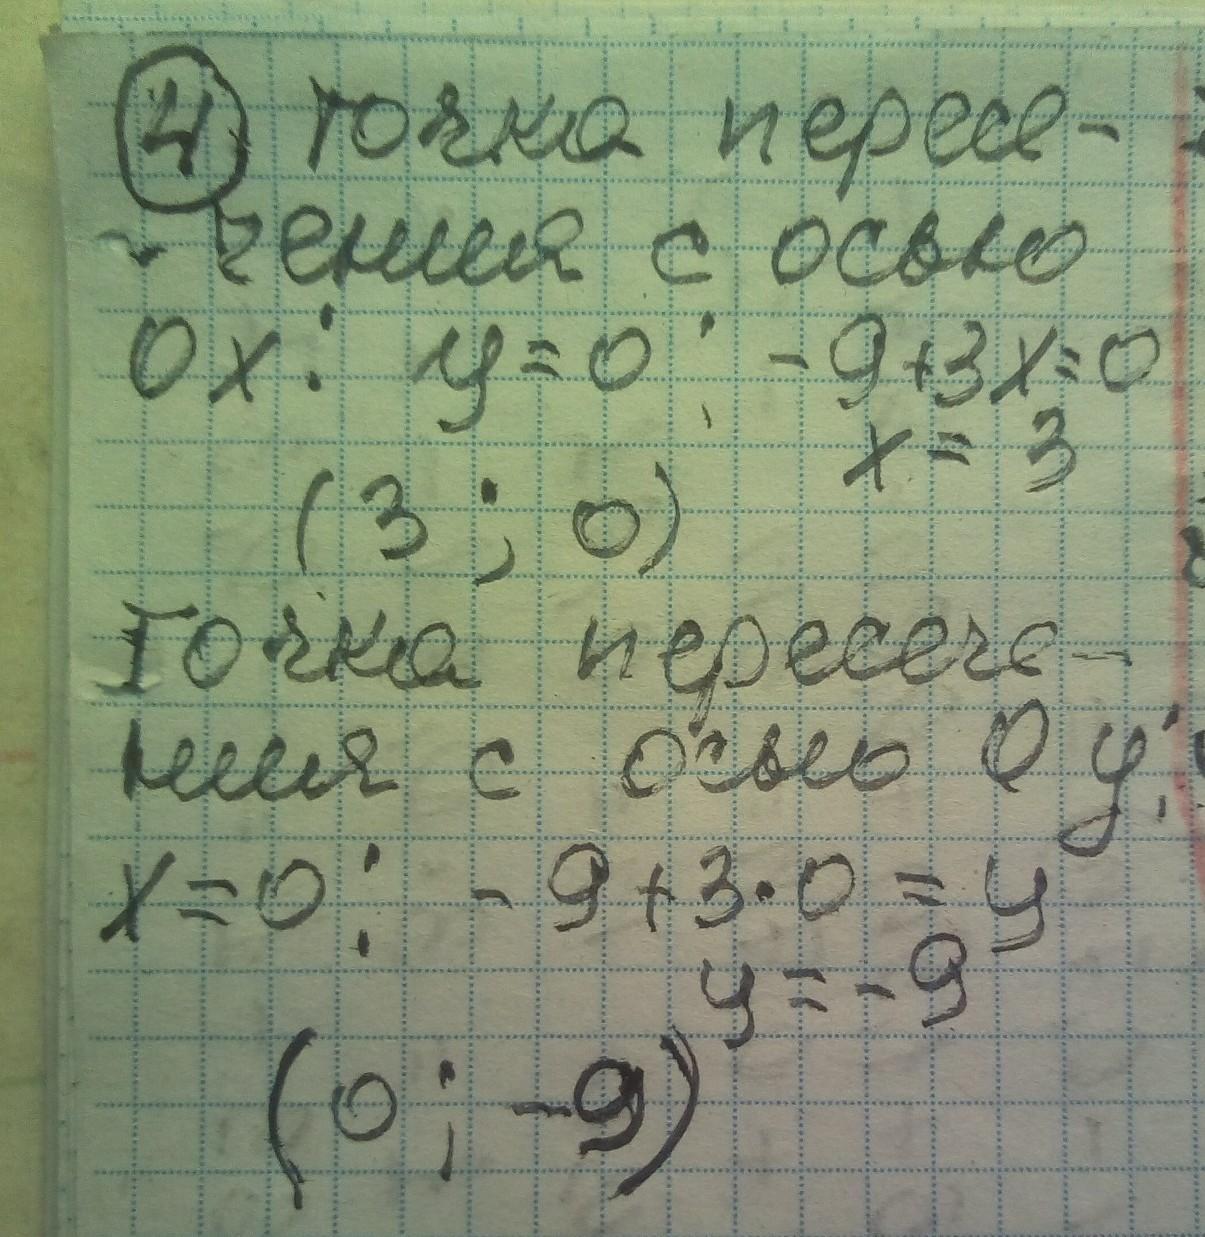 4 Точка пересе-
- чения с осью
0x: y=0; -9+3x=0
x= 3
(3; 0)
Точка пересече-
ния с осью 0y;
x=0; -9+3·0=y
y=-9
(0; -9)